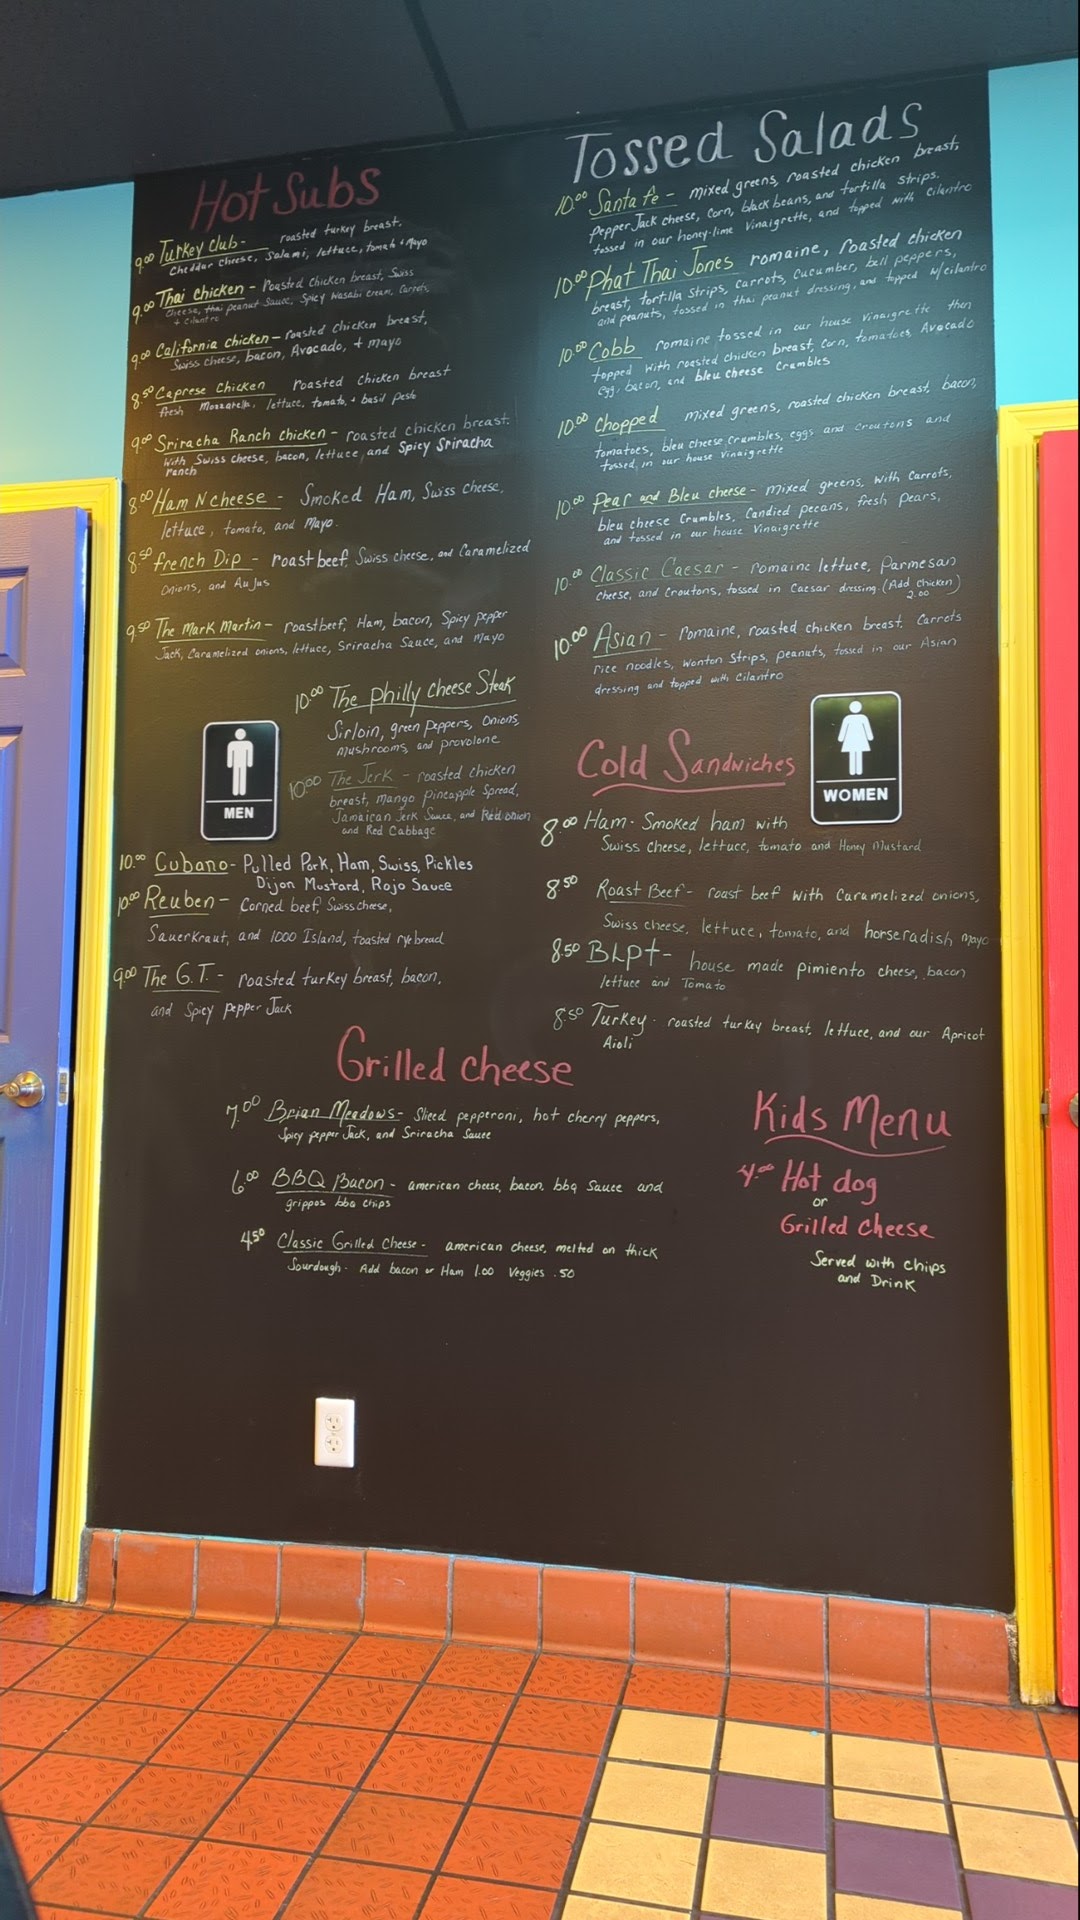 Hot Subs
9.00 Turkey Club - roasted turkey breast.
Cheddar cheese, Salami, lettuce, tomato + Mayo
9.00 Thai Chicken - roasted chicken breast, Swiss
cheese, thai peanut sauce, Spicy Wasabi cream, Carrots,
+ cilantro
9.00 California chicken - roasted chicken breast,
Swiss cheese, bacon, Avocado, + mayo
8.50 Caprese Chicken roasted chicken breast
fresh Mozzarella, lettuce, tomato, + basil pesto
9.00 Sriracha Ranch chicken - roasted chicken breast.
with Swiss cheese, bacon, lettuce, and Spicy Sriracha
ranch
8.00 Ham N cheese - Smoked Ham, Swiss cheese,
lettuce, tomato, and Mayo.
8.50 French Dip - roast beef, Swiss cheese, and Caramelized
Onions, and Au jus
9.50 The Mark Martin - roast beef, Ham, bacon, Spicy pepper
Jack, Caramelized onions, lettuce, Sriracha Sauce, and Mayo
10.00 The Philly Cheese Steak
Sirloin, green peppers, Onions,
mushrooms, and provolone
MEN
10.00 The Jerk - roasted chicken
breast, mango pineapple Spread,
Jamaican Jerk Sauce, and Red onion
and Red Cabbage
10.00 Cubano - Pulled Pork, Ham, Swiss, Pickles
Dijon Mustard, Rojo Sauce
10.00 Reuben - Corned beef, Swiss cheese,
Sauerkraut, and 1000 Island, toasted rye bread
9.00 The G.T. - roasted turkey breast, bacon,
and Spicy pepper Jack
Tossed Salads
10.00 Santa fe - mixed greens, roasted chicken breast,
pepper Jack cheese, corn, black beans, and tortilla strips.
tossed in our honey-lime Vinaigrette, and topped with cilantro
10.00 Phat Thai Jones romaine, roasted chicken
breast, tortilla strips, carrots, cucumber, bell peppers,
and peanuts, tossed in thai peanut dressing, and topped w/cilantro
10.00 Cobb romaine tossed in our house Vinaigrette then
topped with roasted chicken breast, corn, tomatoes, Avocado
egg, bacon, and bleu cheese Crumbles
10.00 Chopped mixed greens, roasted chicken breast, bacon,
tomatoes, bleu cheese crumbles, eggs and croutons and
tossed in our house Vinaigrette
10.00 Pear and Bleu cheese - mixed greens, with Carrots,
bleu cheese Crumbles, Candied pecans, fresh pears,
and tossed in our house Vinaigrette
10.00 Classic Caesar - romaine lettuce, Parmesan
cheese, and Croutons, tossed in Caesar dressing. (Add chicken)
2.00
10.00 Asian - romaine, roasted chicken breast. Carrots
rice noodles, wonton strips, peanuts, tossed in our Asian
dressing and topped with cilantro
WOMEN
Cold Sandwiches
8.00 Ham - Smoked ham with
Swiss cheese, lettuce, tomato and Honey Mustard
8.50 Roast Beef - roast beef with Caramelized onions,
Swiss cheese, lettuce, tomato, and horseradish mayo
8.50 BLPT - house made pimiento cheese, bacon
lettuce and Tomato
8.50 Turkey - roasted turkey breast, lettuce, and our Apricot
Aioli
Grilled Cheese
7.00 Brian Meadows - Sliced pepperoni, hot cherry peppers,
Spicy pepper Jack, and Sriracha Sauce
6.00 BBQ Bacon - american cheese, bacon, bbq Sauce and
grippos bbq chips
4.50 Classic Grilled Cheese - american cheese, melted on thick
Sourdough. Add bacon or Ham 1.00 Veggies .50
Kids Menu
4.00 Hot dog
or
Grilled Cheese
Served with chips
and Drink